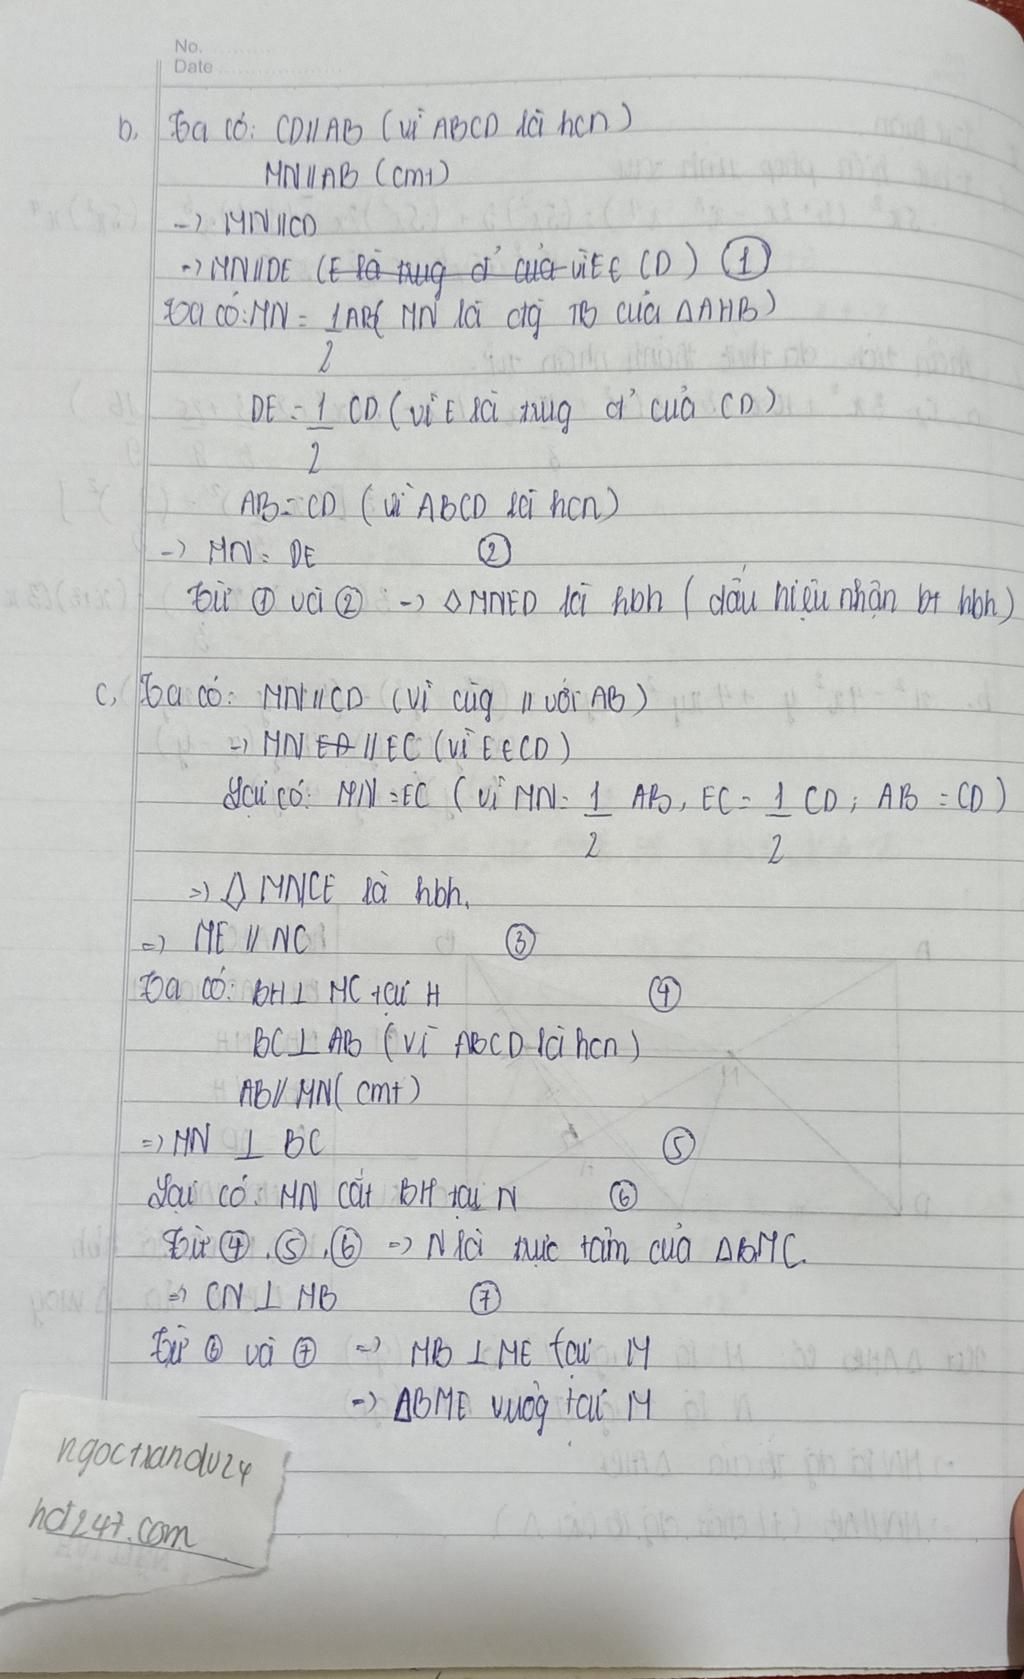 No.
Date
b, Ta có: CD//AB (vì ABCD là hcn)
MN//AB (cmt)
-> MN//CD
=> MN//DE (E là trug đ' của vì E ∈ CD) ①
Ta có: MN = 1/2 AB( MN là đg TB của ΔAHB)
DE = 1/2 CD (vì E là trug đ' của CD)
AB = CD (vì ABCD là hcn)
-> MN = DE ②
Từ ① và ② -> ◊ MNED là hbh (dấu hiệu nhận bt hbh)
c, Ta có: MN//CD (vì cùg // với AB)
=> MN // EC (vì E ∈ CD)
Lại có: MN = EC (vì MN = 1/2 AB, EC = 1/2 CD; AB = CD)
=> ◊ MNCE là hbh.
=> ME // NC ③
Ta có: BH ⊥ MC tại H ④
BC ⊥ AB (vì ABCD là hcn)
AB // MN (cmt)
=> MN ⊥ BC ⑤
Lại có: MN cắt BH tại N ⑥
Từ ④, ⑤, ⑥ => N là trực tâm của ΔBMC.
=> CN ⊥ MB ⑦
Từ ⑥ và ⑦ => MB ⊥ ME tại M
=> ΔBME vuôg tại M
ngoctrandv24
hd247.com